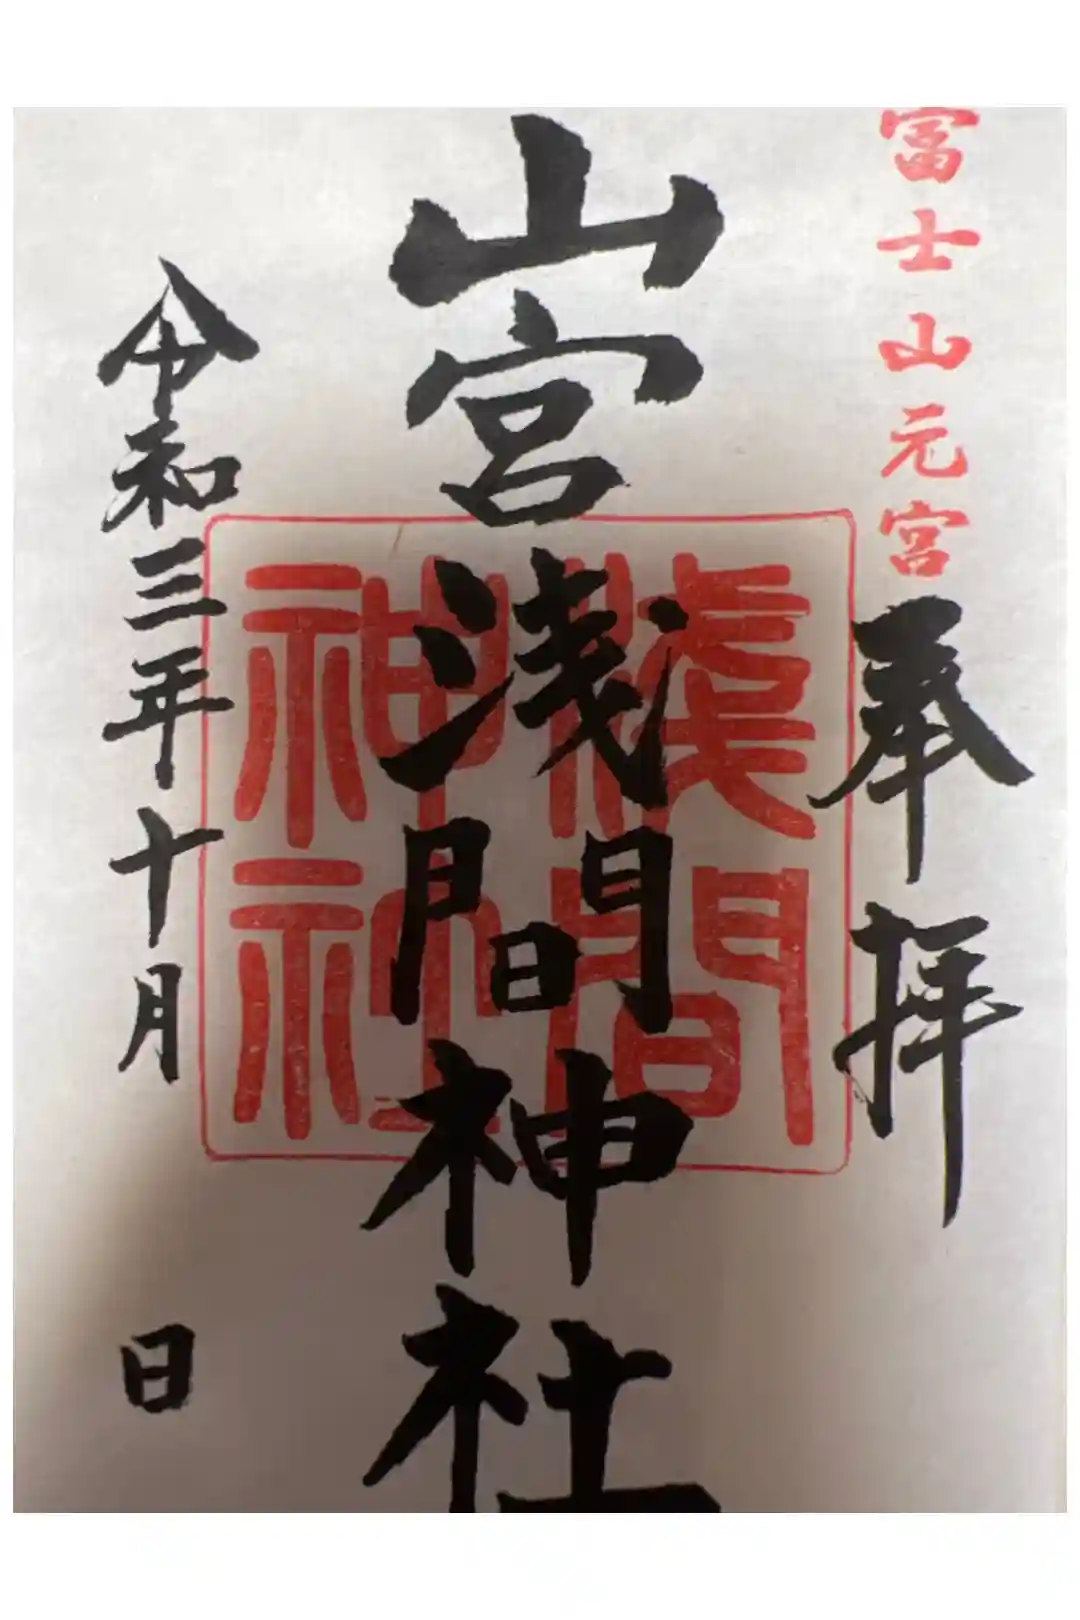 富士山元宮
奉拝
山宮浅間神社
淺間
神社
令和三年十月 日